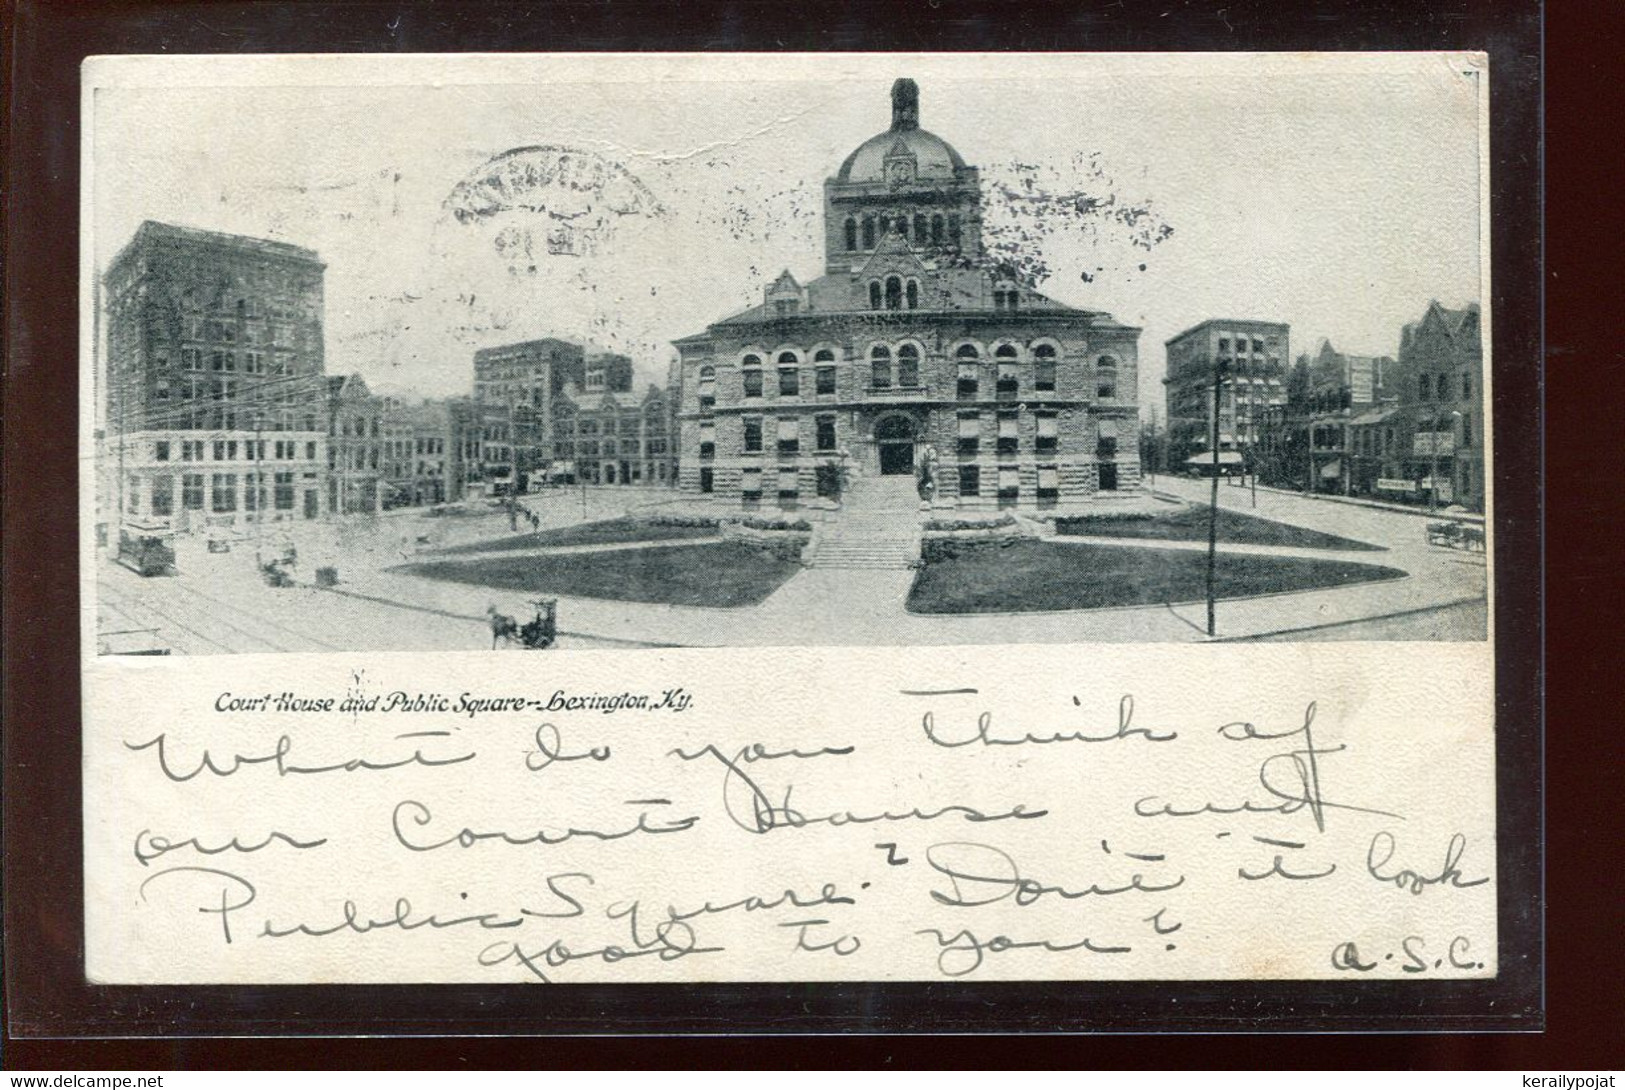 Court House and Public Square--Lexington, Ky.
What do you think of
our Court House and
Public Square? Don't it look
good to you?
A.S.C.
www.delcampe.net
kerailypojat